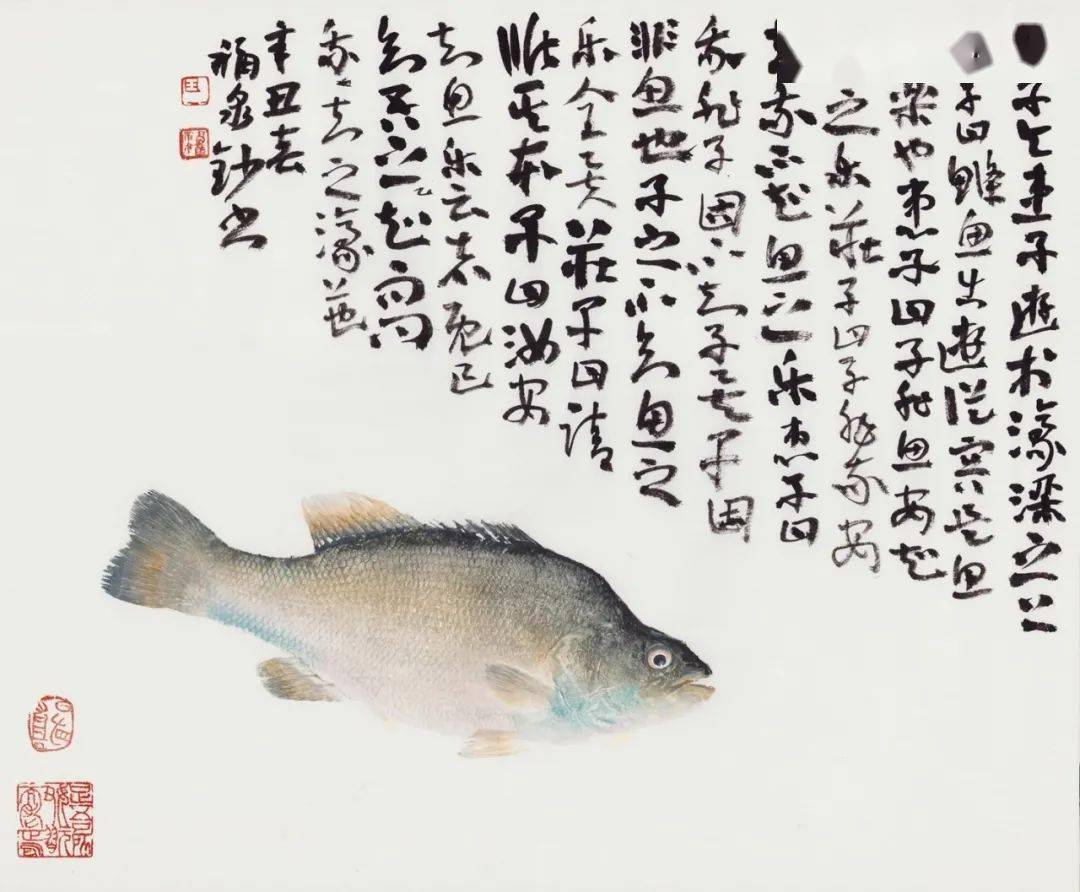 子与惠子遊於濠梁之上
子曰鯈魚出遊從容是魚
樂也惠子曰子非魚安知
之乐莊子曰子非我安
我不知魚之乐惠子曰
我非子固不知子矣子固
非魚也子之不知魚之
乐全矣莊子曰請
循其本子曰汝安
知魚乐云者既已
知吾之知而問
我知之濠上也
辛丑春
福泉鈔书